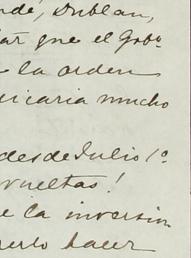 nde, Dublan,
tar que el Gobo.
e la orden
icaria mucho
desde Julio 1º
vueltas!
e la inversion
erlo hacer